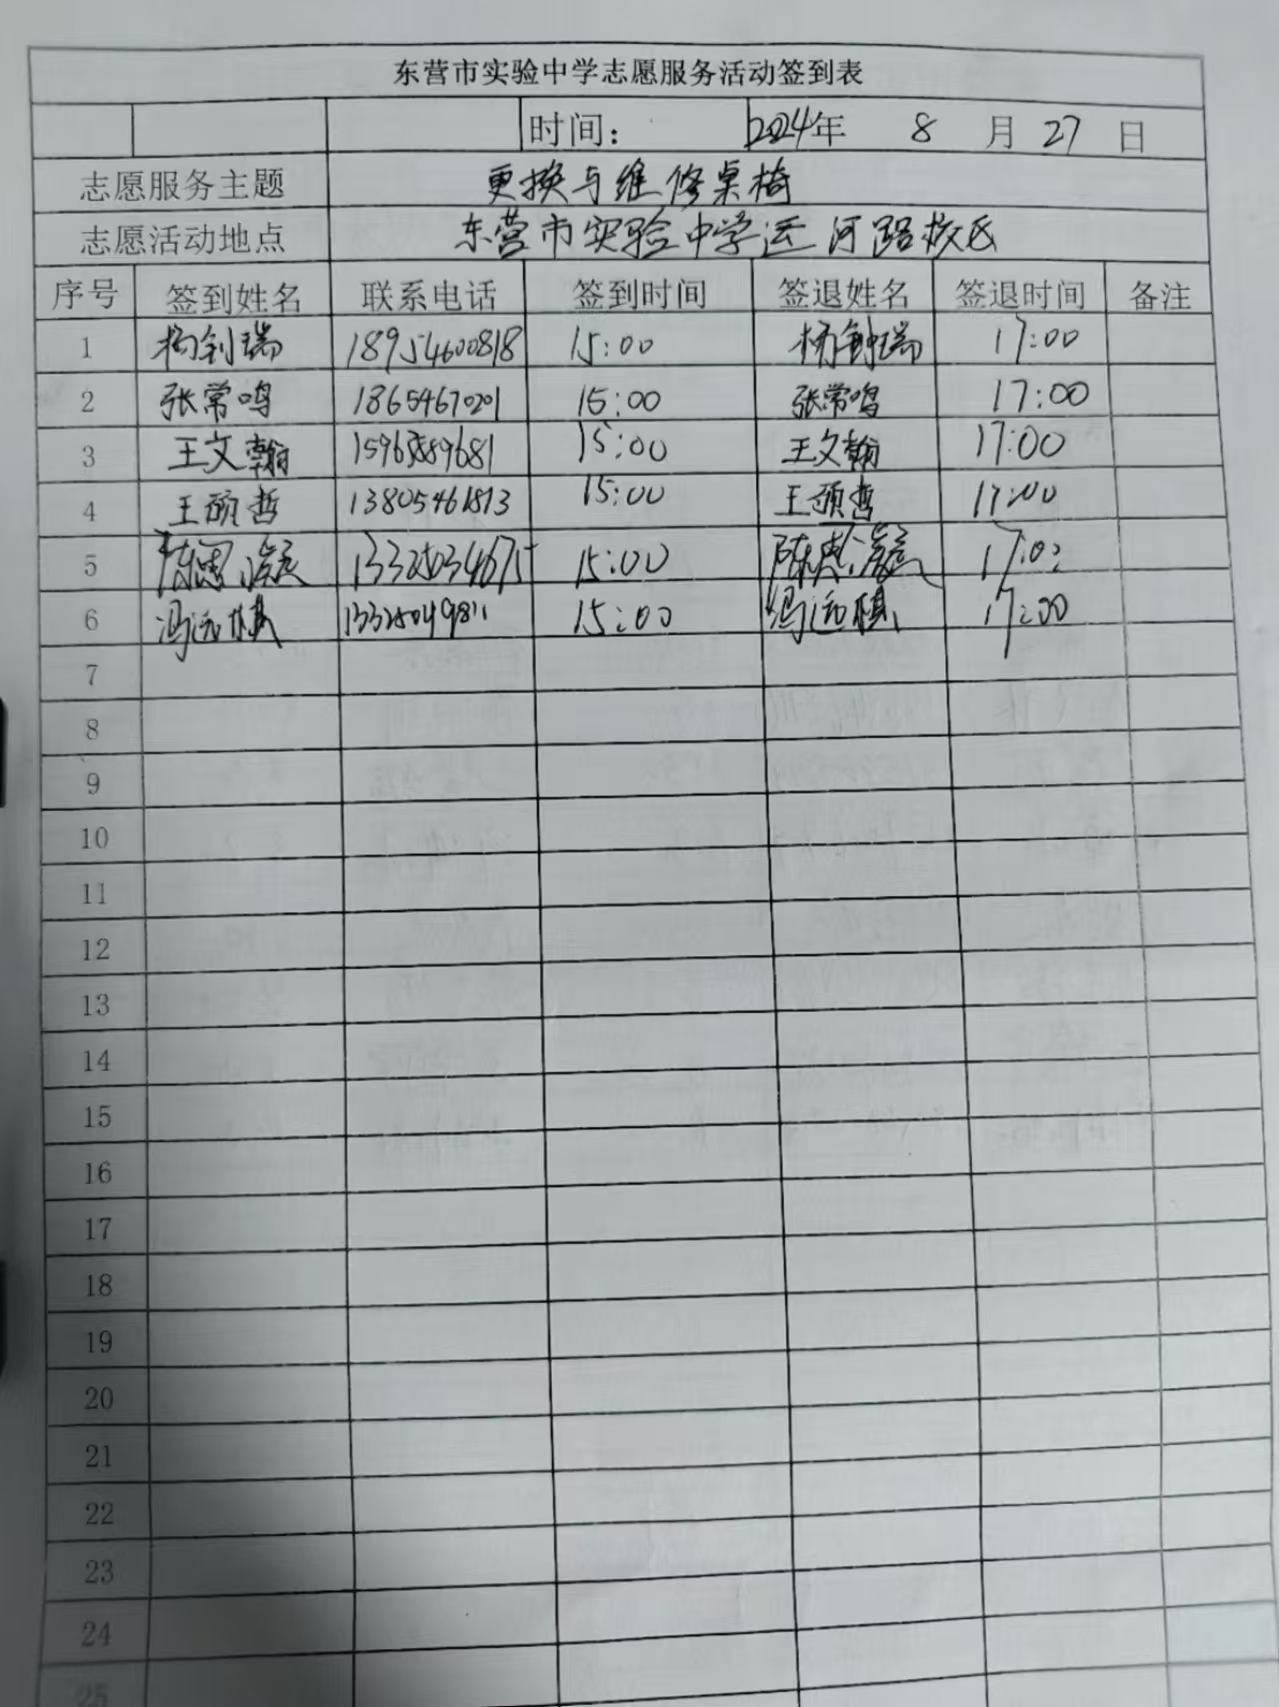 东营市实验中学志愿服务活动签到表
时间： 2024年 8 月 27 日
志愿服务主题 更换与维修桌椅
志愿活动地点 东营市实验中学运河路校区
序号 签到姓名 联系电话 签到时间 签退姓名 签退时间 备注
1 杨钊瑞 18954600818 15:00 杨钟瑞 17:00
2 张常鸣 18654670201 15:00 张常鸣 17:00
3 王文翰 15:00 王文翰 17:00
4 王硕哲 15:00 王硕哲 17:00
5 15:00 17:00
6 冯远棋 15:00 冯远棋 17:00
7
8
9
10
11
12
13
14
15
16
17
18
19
20
21
22
23
24
25